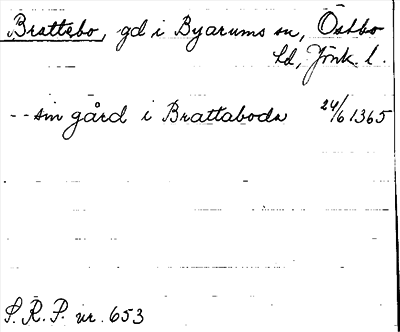 Brattebo, gd i Byarums sn, Östbo
hd, Jönk. l.
-- sin gård i Brattaboda 24/6 1365
S. R. P. nr. 653